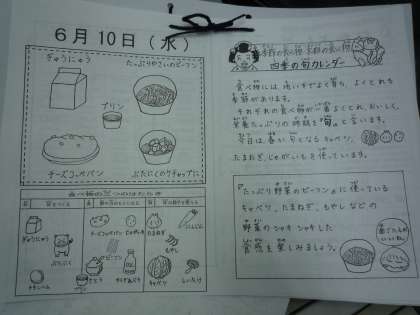 6月10日(水)
ぎゅうにゅう
たっぷりやさいのビーフン
プリン
チーズコッペパン
ぶたにくのケチャップに
食べ物の
はたらき
ぎゅうにゅう
ぶたにく
チーズコッペパン
じゃがいも
たまねぎ
にんじん
もやし
ビーフン
さとう
キャベツ
しいたけ
四季の旬カレンダー
食べ物には、
よくとれる
季節があります。
それぞれの食べ物が一番よくとれ、おいしく、
栄養たっぷりの時期を「旬」と言います。
今日は、春が旬となるキャベツ、
たまねぎ、じゃがいもを使っています。
『たっぷり野菜のビーフン』に使っている
キャベツ、たまねぎ、もやしなどの
野菜のシャキシャキした
食感を楽しみましょう。